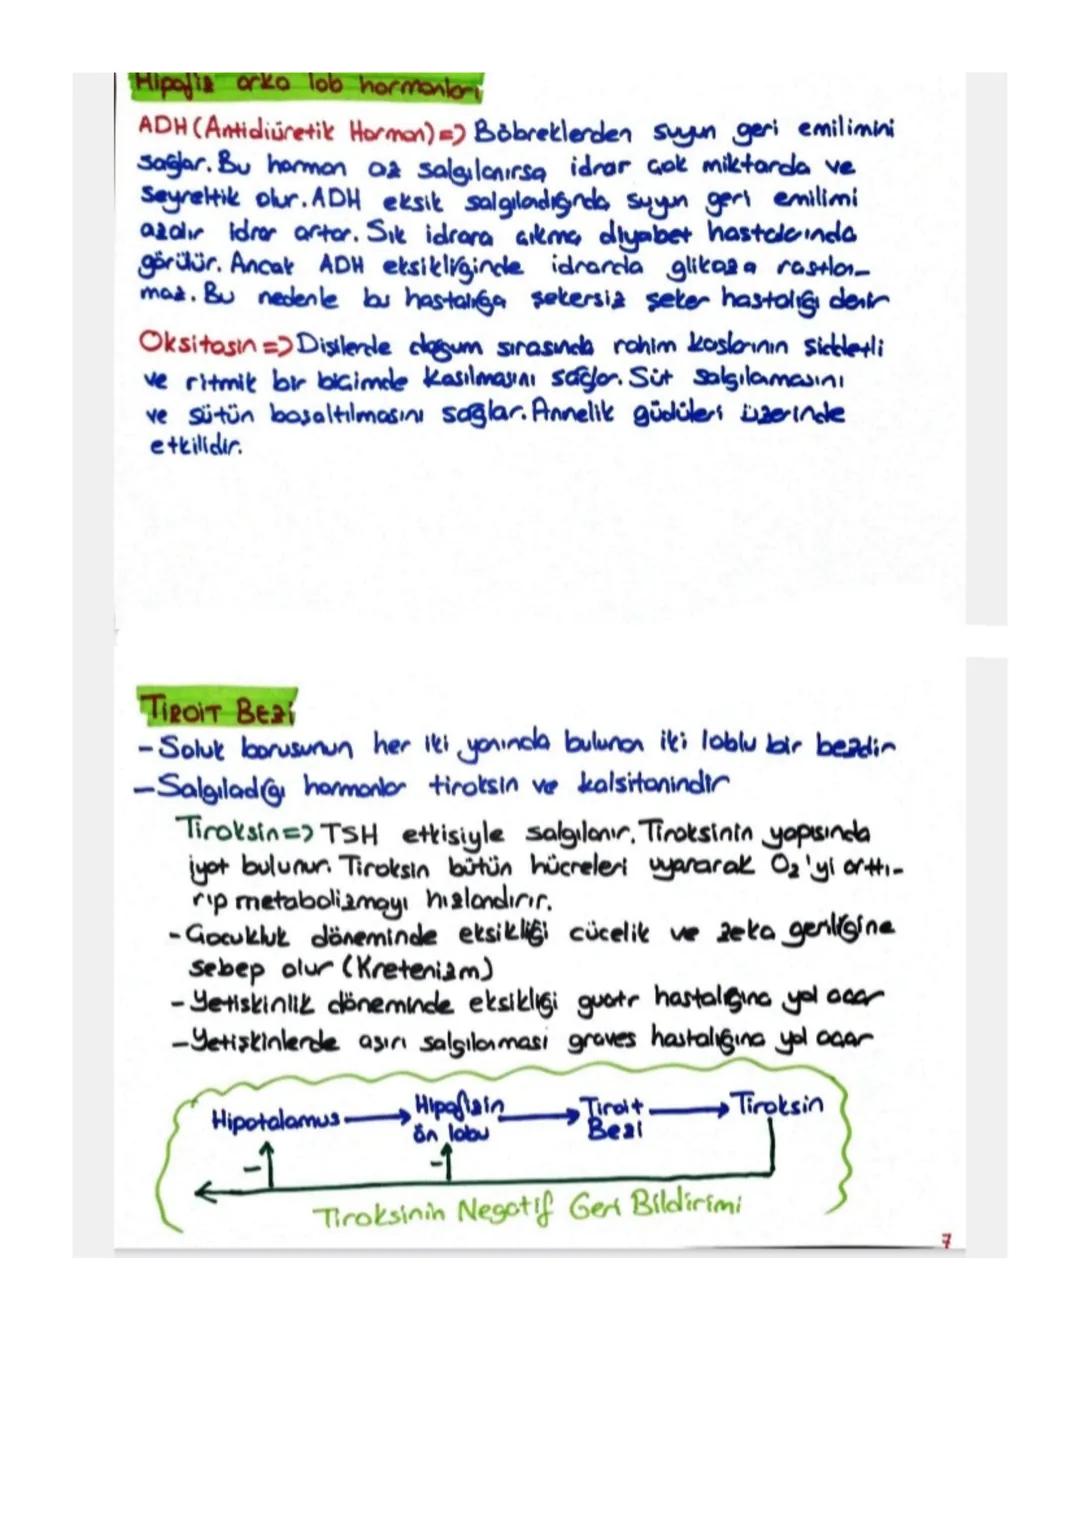 Hipofiz arka lob hormonları
ADH (Antidiüretik Hormon) => Böbreklerden suyun geri emilimini
sağlar. Bu hormon az salgılanırsa idrar çok miktarda ve
seyreltik olur. ADH eksik salgılandığında suyun geri emilimi
azalır idrar artar. Sık idrara çıkma diyabet hastalarında
görülür. Ancak ADH eksikliğinde idrarda glikoza rastlan-
maz. Bu nedenle bu hastalığa şekersiz şeker hastalığı denir
Oksitosin => Dişilerde doğum sırasında rahim kaslarının şiddetli
ve ritmik bir biçimde kasılmasını sağlar. Süt salgılamasını
ve sütün boşaltılmasını sağlar. Annelik güdüleri üzerinde
etkilidir.
TİROİT BEZİ
- Soluk borusunun her iki yanında bulunan iki loblu bir bezdir
- Salgıladığı hormonlar tiroksin ve kalsitonindir
Tiroksin => TSH etkisiyle salgılanır. Tiroksinin yapısında
iyot bulunur. Tiroksin bütün hücreleri uyararak O₂'yi arttı-
rıp metabolizmayı hızlandırır.
- Çocukluk döneminde eksikliği cücelik ve zeka geriliğine
sebep olur (Kretenizm)
- Yetişkinlik döneminde eksikliği guatr hastalığına yol açar
- Yetişkinlerde aşırı salgılanması graves hastalığına yol açar
Hipotalamus → Hipofizin ön lobu → Tiroit Bezi → Tiroksin
- -
Tiroksinin Negatif Geri Bildirimi
7